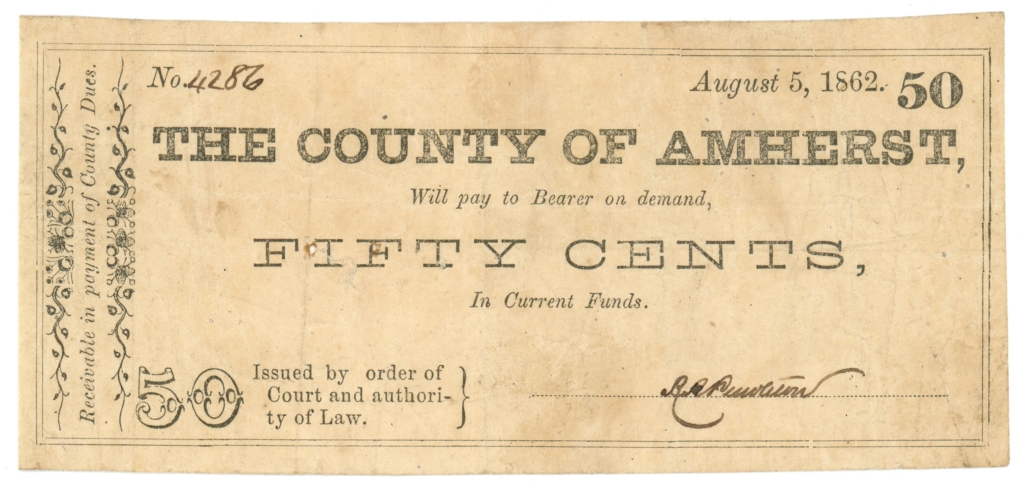 Receivable in payment of County Dues.
No. 4286
August 5, 1862. 50
THE COUNTY OF AMHERST,
Will pay to Bearer on demand,
FIFTY CENTS,
In Current Funds.
50
Issued by order of
Court and authori-
ty of Law.
Pendleton